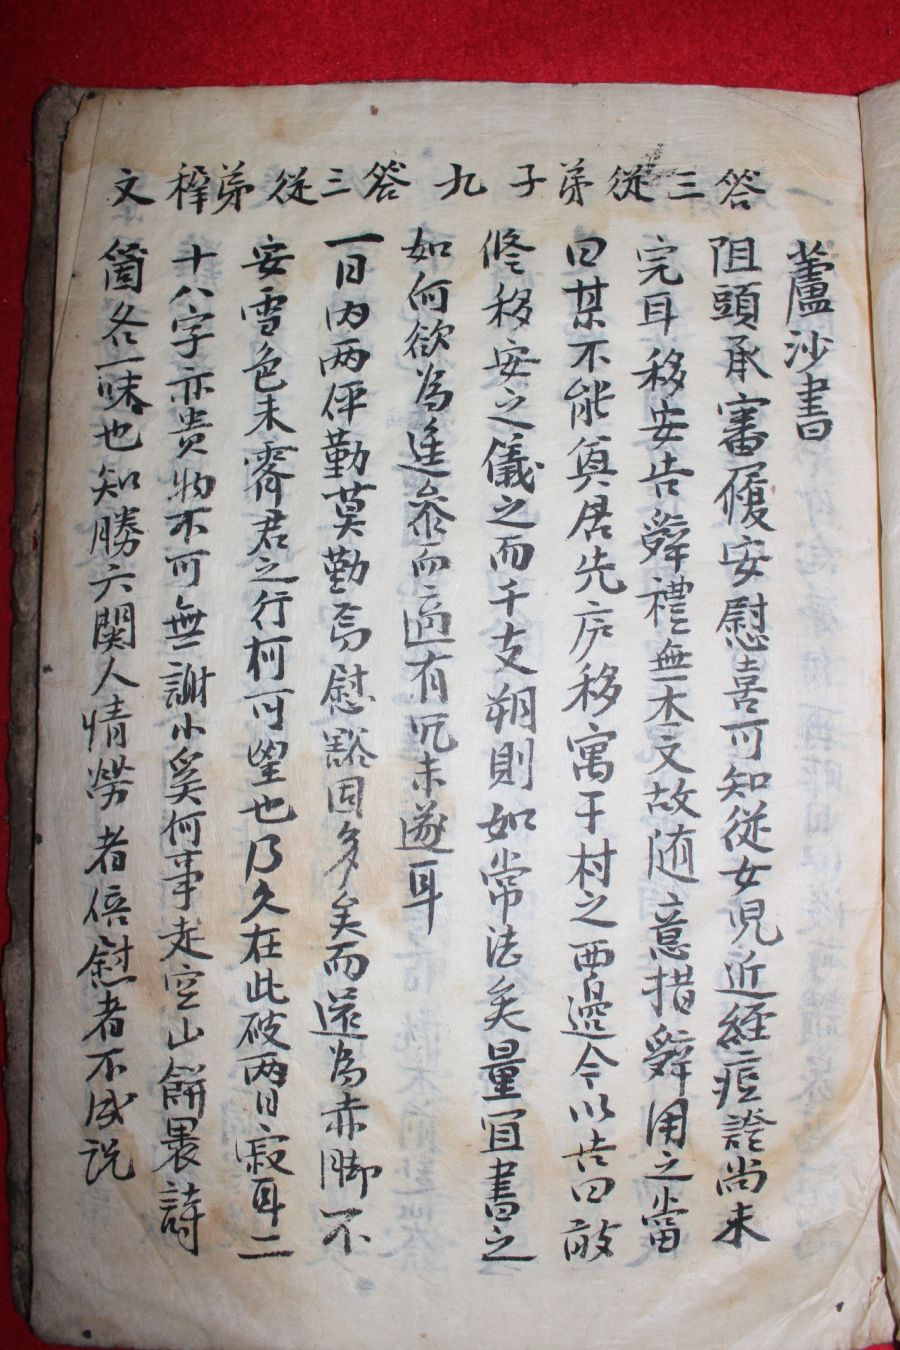 蘆沙書
答三從弟子九
阻頭承審履安慰喜可知從女児近經痘證尚未
完耳移安告辤禮無本文故随意措辤用之當
曰某不能奠居先庐移寓于村之西邊今以吉日敢
修移安之儀之而千支朔則如常法矣量宜書之
如何欲為進參而適有冗未遂耳
答三從弟穉文
一日内两伻勤莫勤焉慰豁固多矣而還為赤脚不
安雪色未霽君之行柯可望也乃久在此破两日寂耳二
十八字亦貴物不可無謝小奚何事走空山餠裹詩
箇各一味也知勝六関人情勞者倍慰者不成説